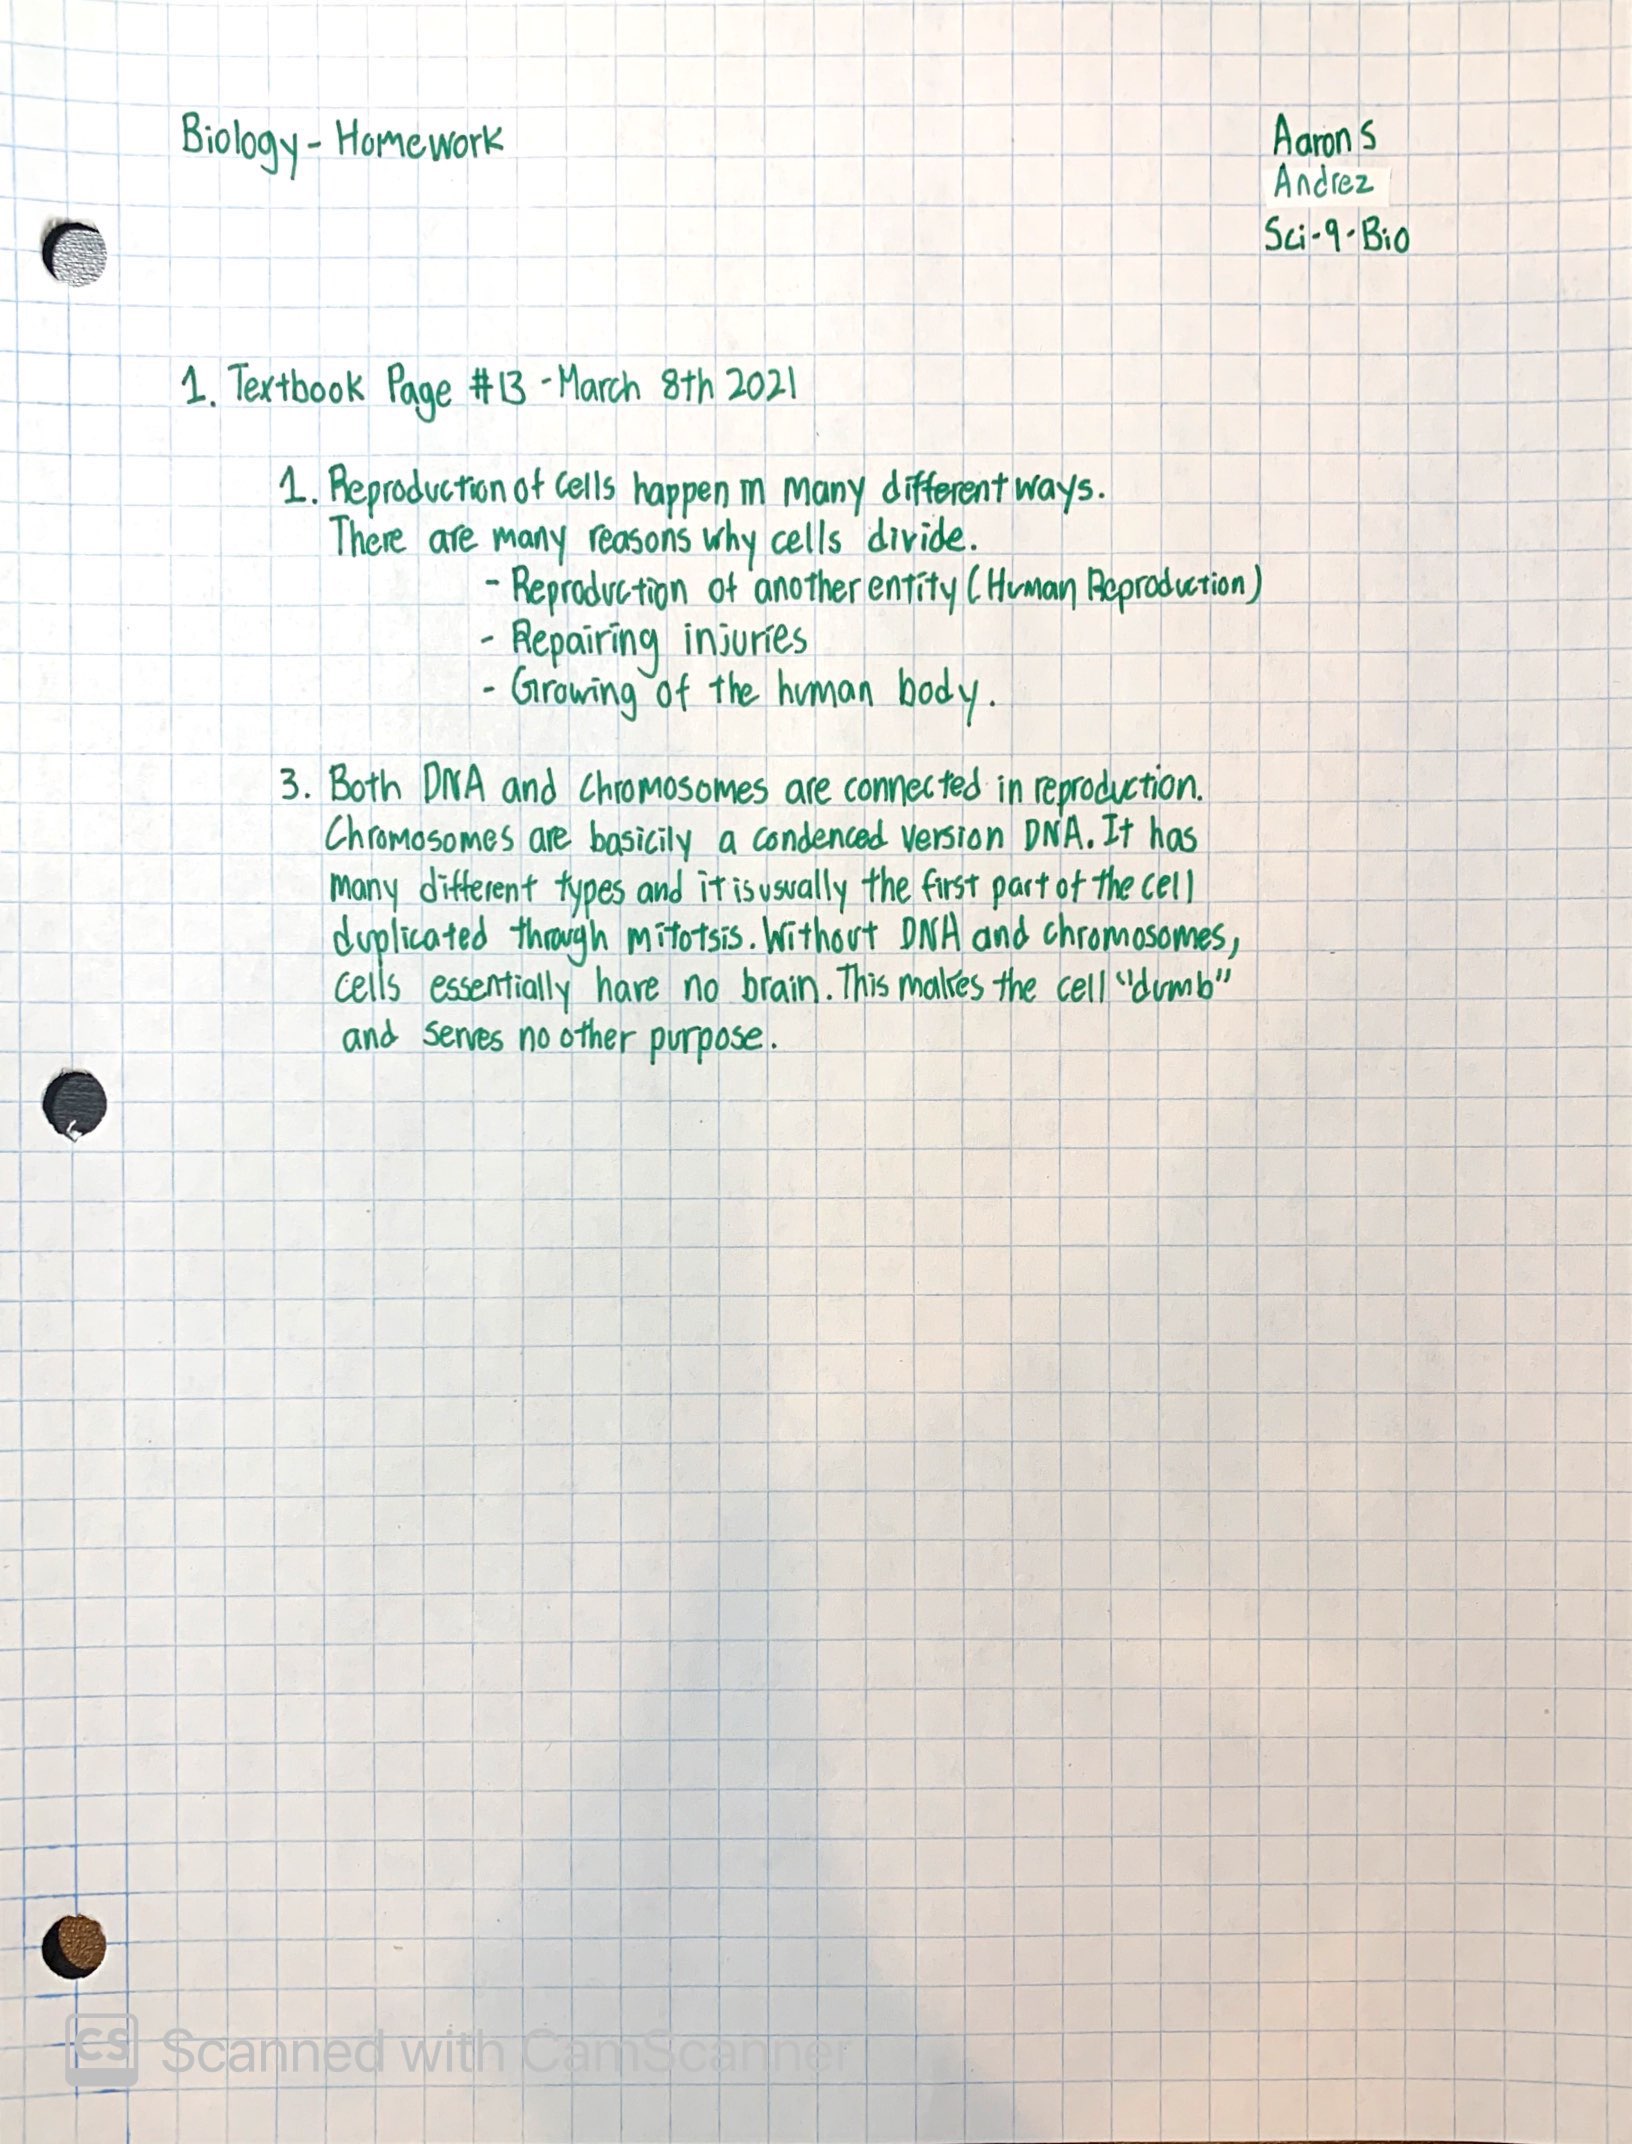 Biology - Homework
Aaron S
Andrez
Sci-9-Bio
1. Textbook Page #13 - March 8th 2021
1. Reproduction of cells happen in many different ways.
There are many reasons why cells divide.
- Reproduction of another entity (Human Reproduction)
- Repairing injuries
- Growing of the human body.
3. Both DNA and chromosomes are connected in reproduction.
Chromosomes are basicily a condenced version DNA. It has
many different types and it is usually the first part of the cell
duplicated through mitotsis. Without DNA and chromosomes,
cells essentially have no brain. This makes the cell "dumb"
and serves no other purpose.
CS Scanned with CamScanner